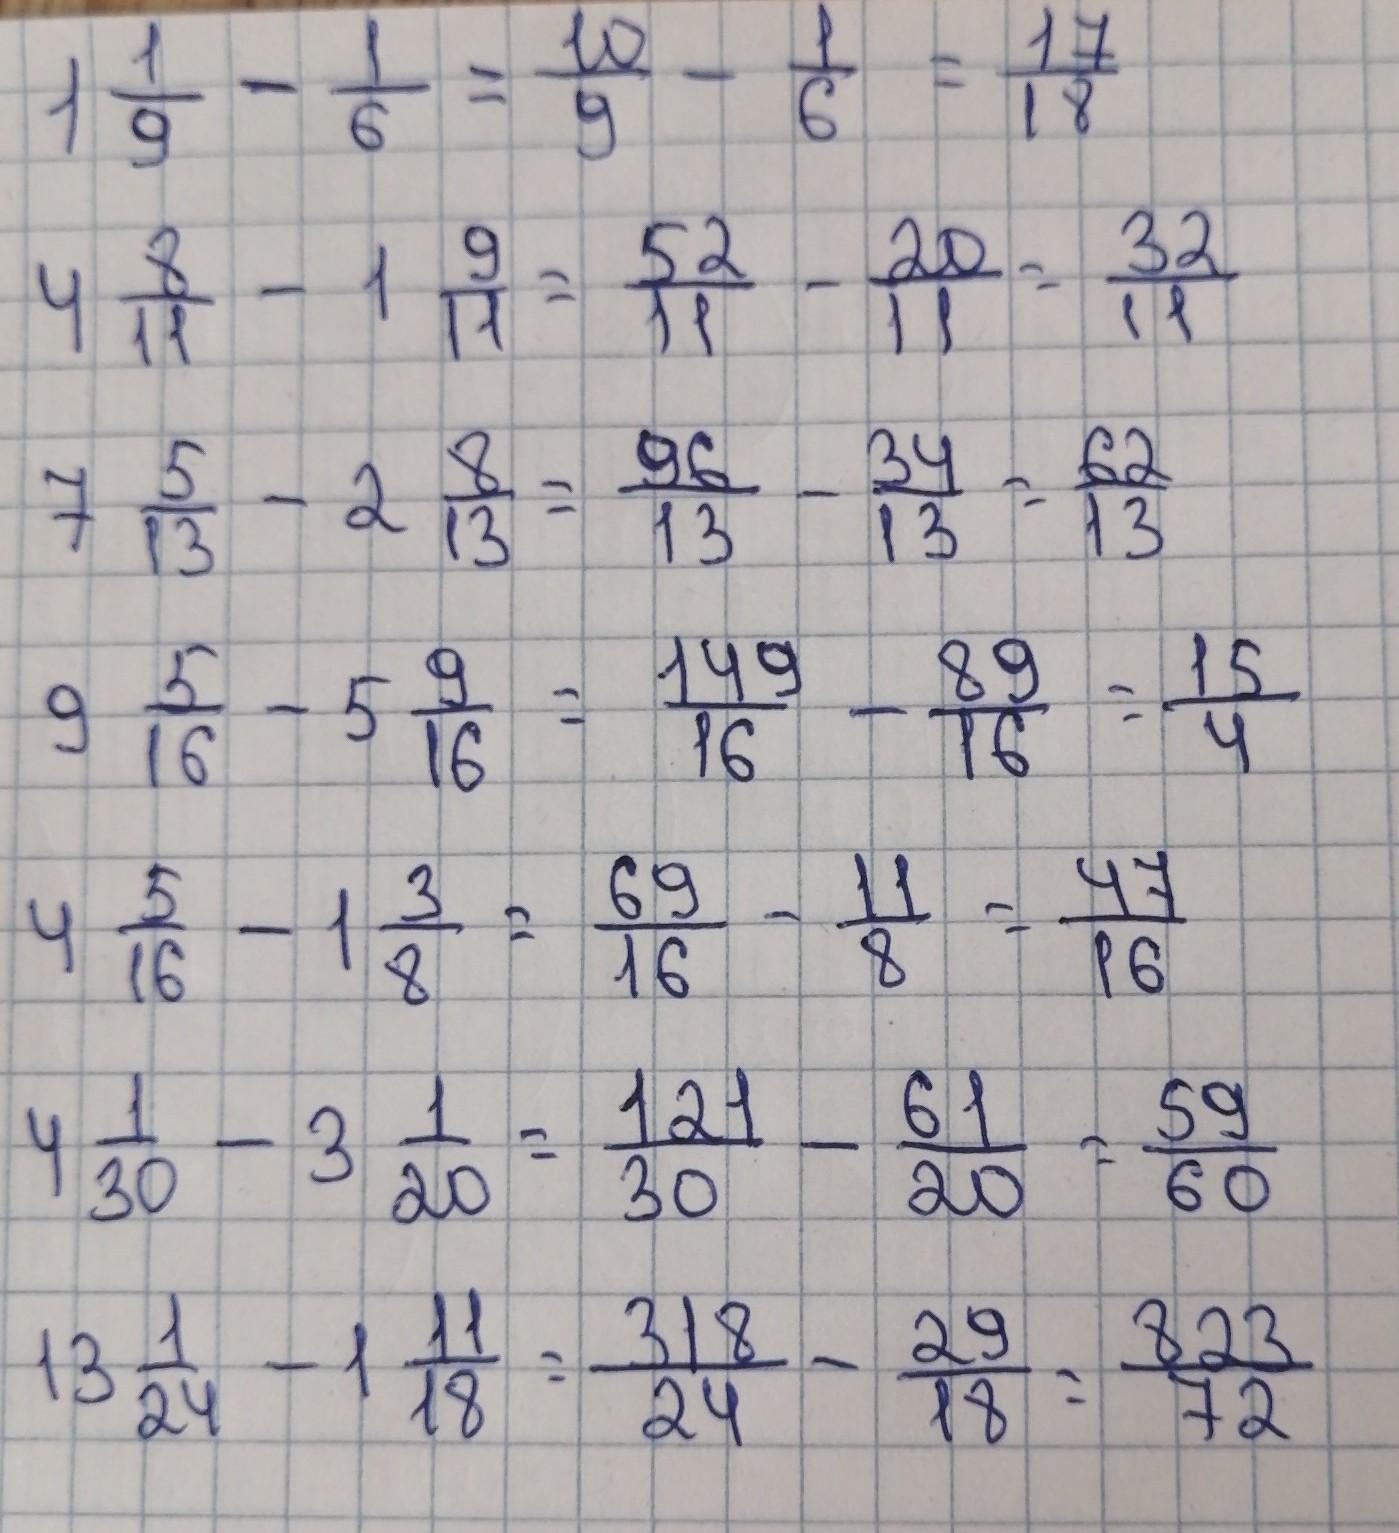 1 1/9 - 1/6 = 10/9 - 1/6 = 17/18
4 8/11 - 1 9/11 = 52/11 - 20/11 = 32/11
7 5/13 - 2 8/13 = 96/13 - 34/13 = 62/13
9 5/16 - 5 9/16 = 149/16 - 89/16 = 15/4
4 5/16 - 1 3/8 = 69/16 - 11/8 = 47/16
4 1/30 - 3 1/20 = 121/30 - 61/20 = 59/60
13 1/24 - 1 11/18 = 318/24 - 29/18 = 823/72